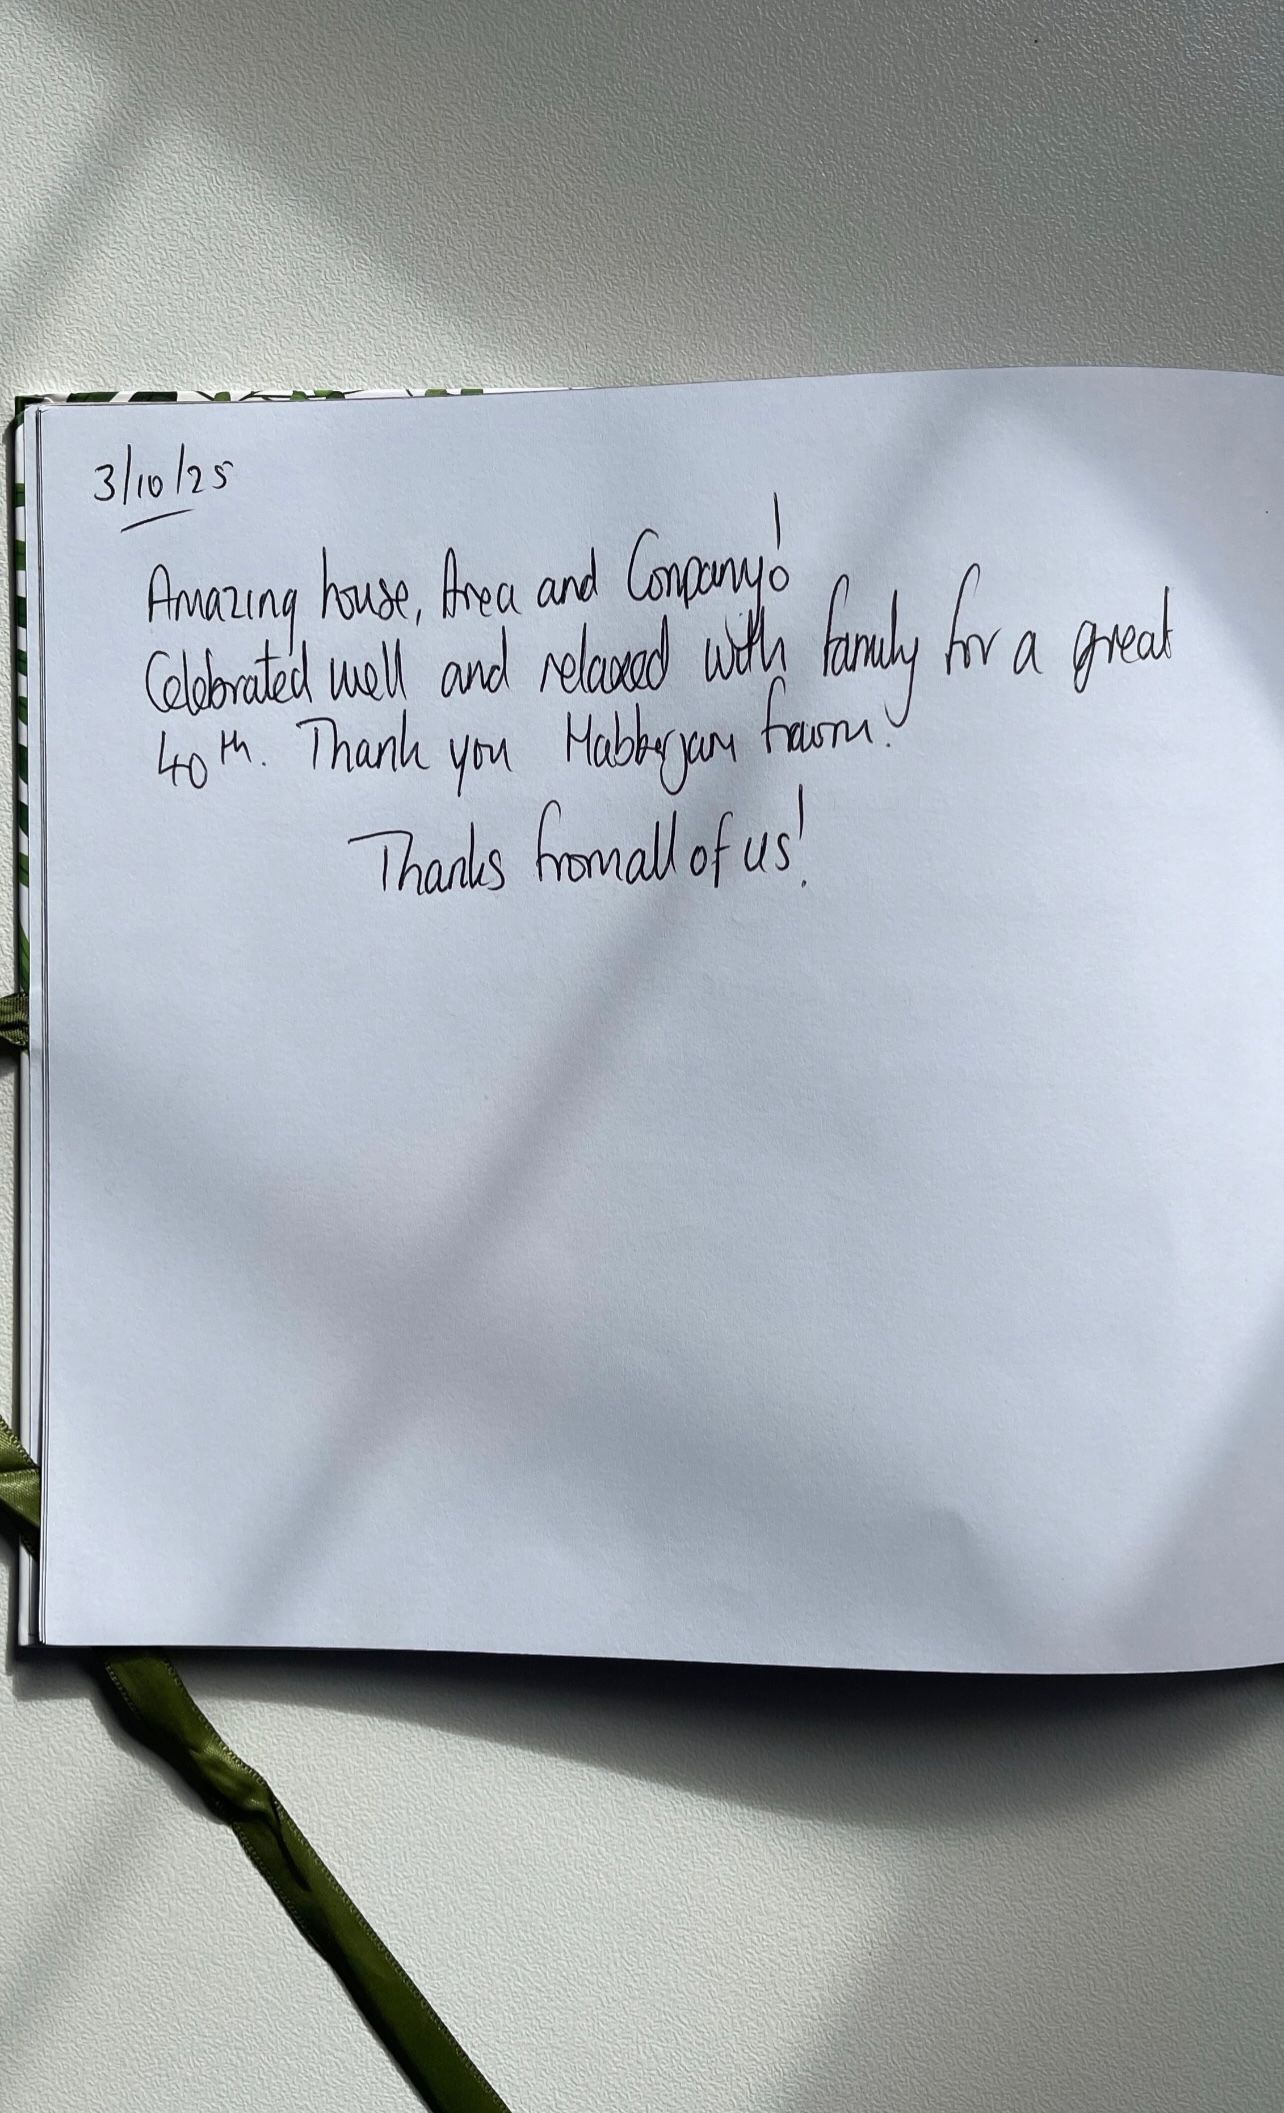 3/10/25
Amazing house, Area and Company!
Celebrated well and relaxed with family for a great
40th. Thank you Habberjam farm!
Thanks from all of us!